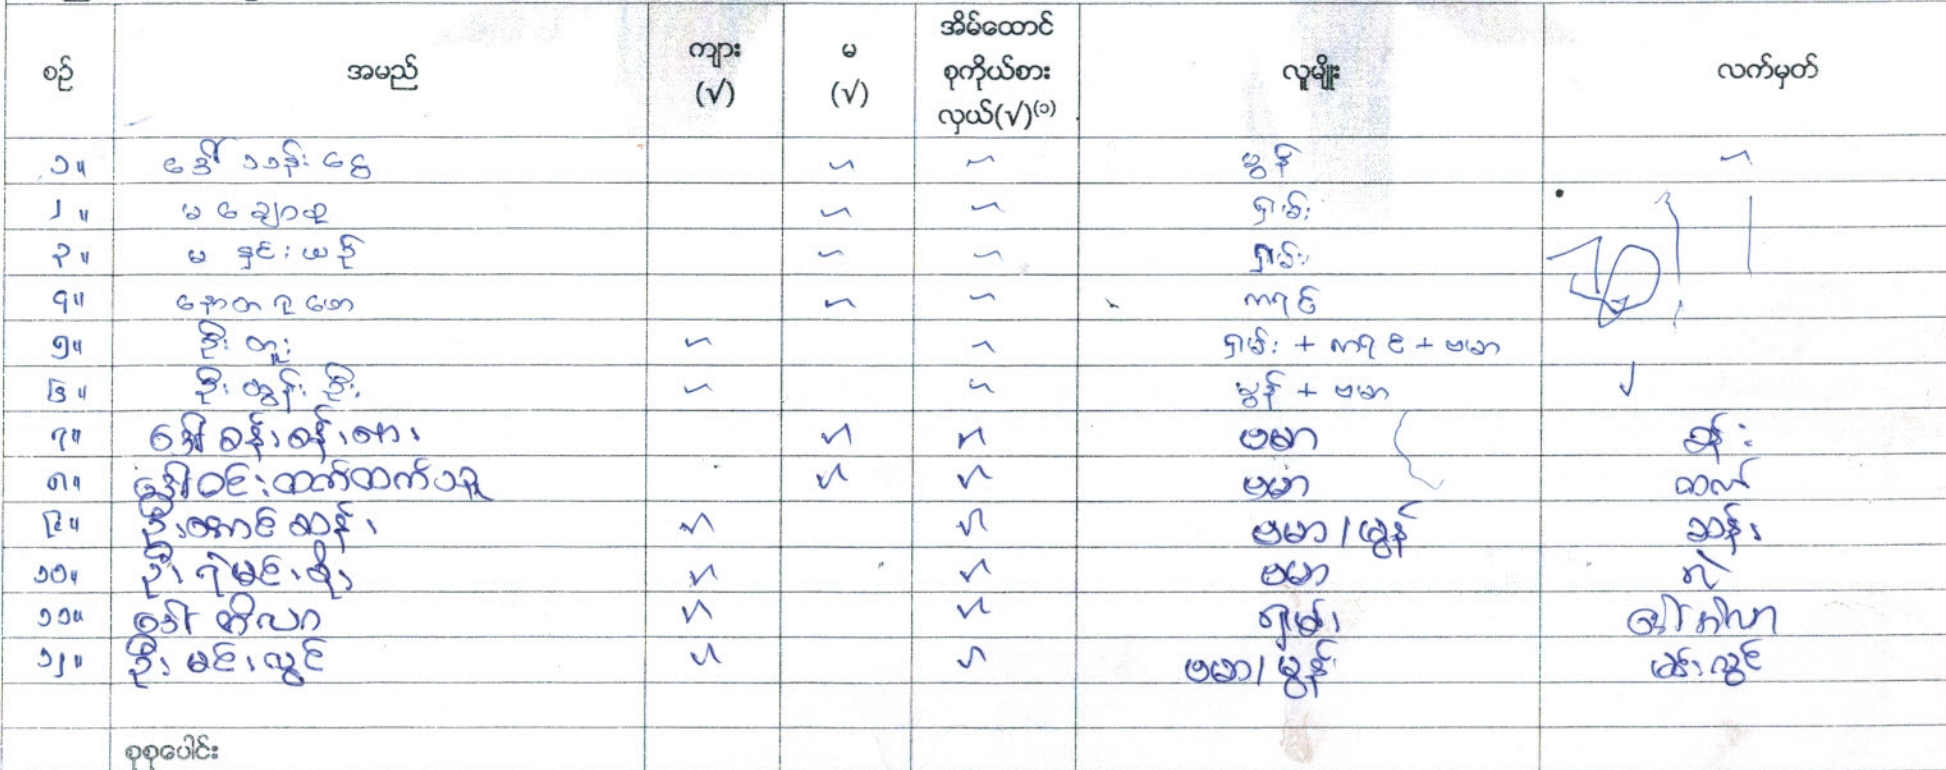 စဉ် အမည် ကျား (√) မ (√) အိမ်ထောင်စုကိုယ်စားလှယ်(√)⁽¹⁾ လူမျိုး လက်မှတ်
၁။ ဒေါ်သန်းငွေ ✓ ✓ မွန်
၂။ မချောစု ✓ ✓ ရှမ်း
၃။ မနှင်းယဉ် ✓ ✓ ရှမ်း
၄။ ✓ ✓ ကရင်
၅။ ဦးတူး ✓ ✓ ရှမ်း + ကရင် + ဗမာ
၆။ ဦးထွန်းဦး ✓ ✓ မွန် + ဗမာ
၇။ ✓ ✓ ဗမာ
၈။ ဒေါ်ဝင်းထက်ထက်သူ ✓ ✓ ဗမာ ထက်
၉။ ဦးအောင်ဆန်း ✓ ✓ ဗမာ / မွန် ဆန်း
၁၀။ ဦးရဲမင်းစိုး ✓ ✓ ဗမာ ရဲ
၁၁။ ✓ ✓ ရှမ်း
၁၂။ ဦးမင်းလွင် ✓ ✓ ဗမာ / မွန် မင်းလွင်
စုစုပေါင်း